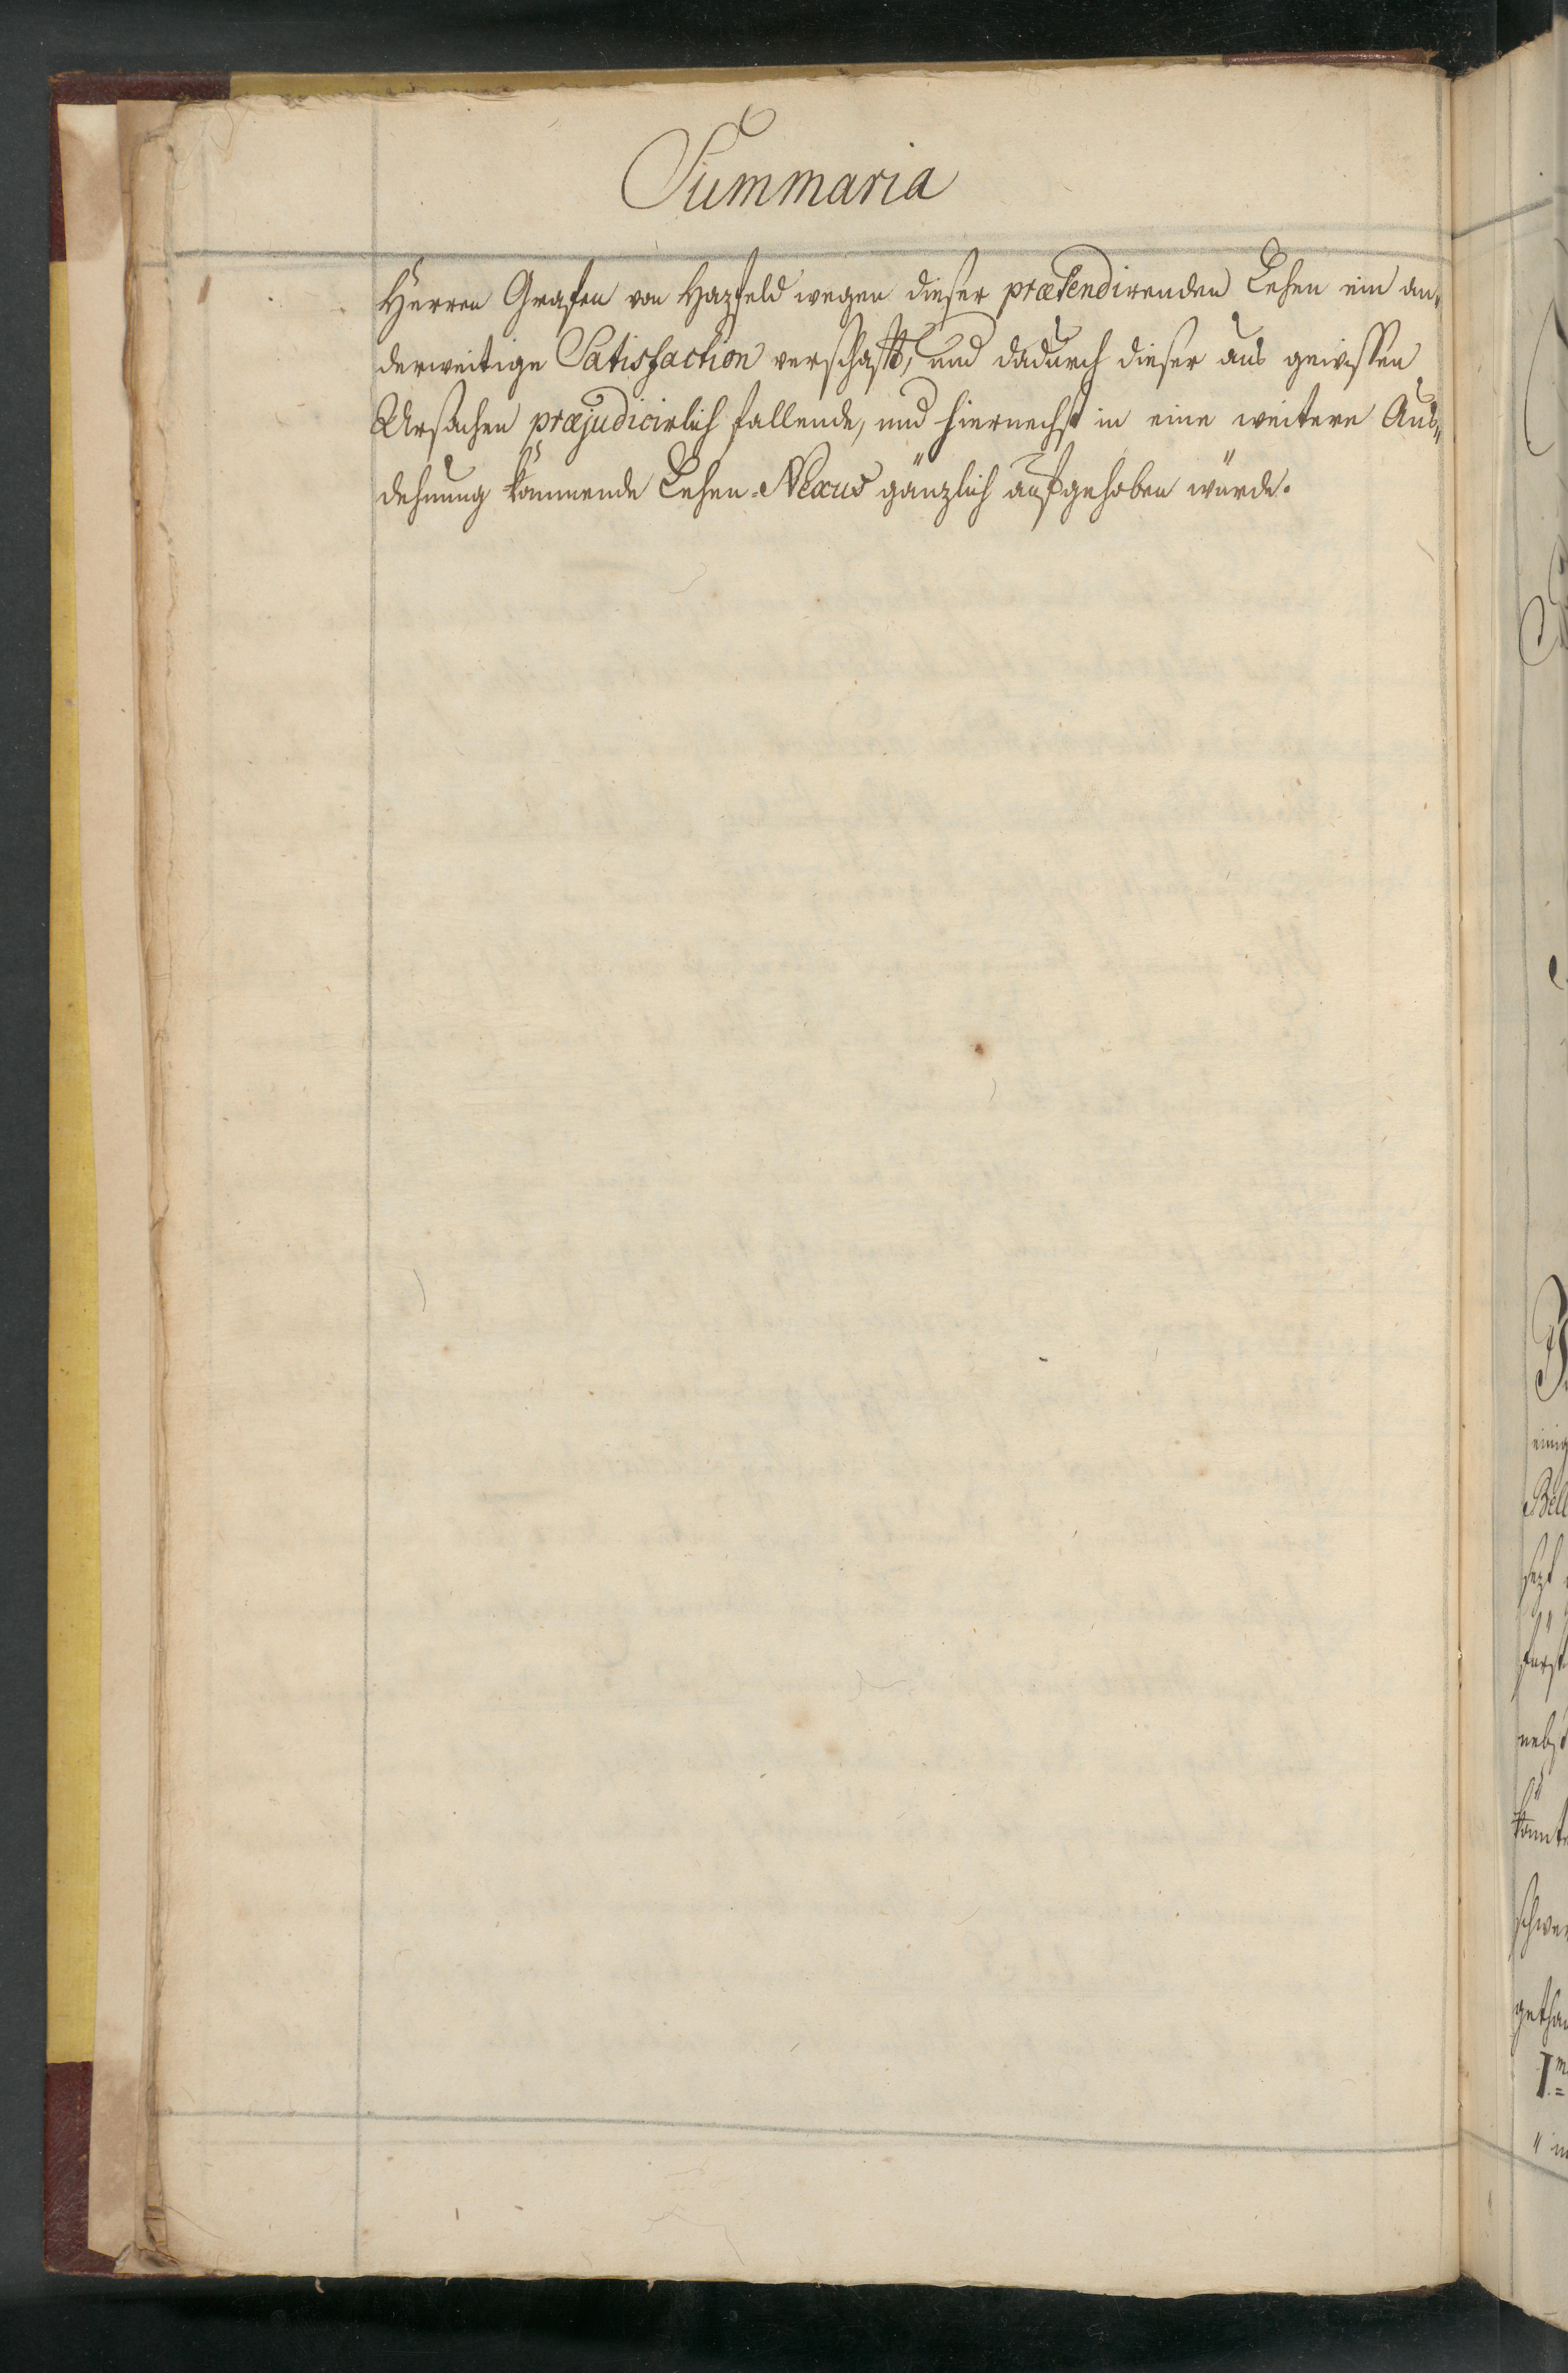 Summaria
Herren Grafen von Hazfeld wegen dieser prætendirenden Lehen ein an„
derweitige Satisfaction verschafft, und dadurch dieser aus gewissen
Ursachen præjudicirlich fallende, und hiernechst in eine weitere Aus„
dehnung kommende Lehen-Nexus gänzlich aufgehoben würde.